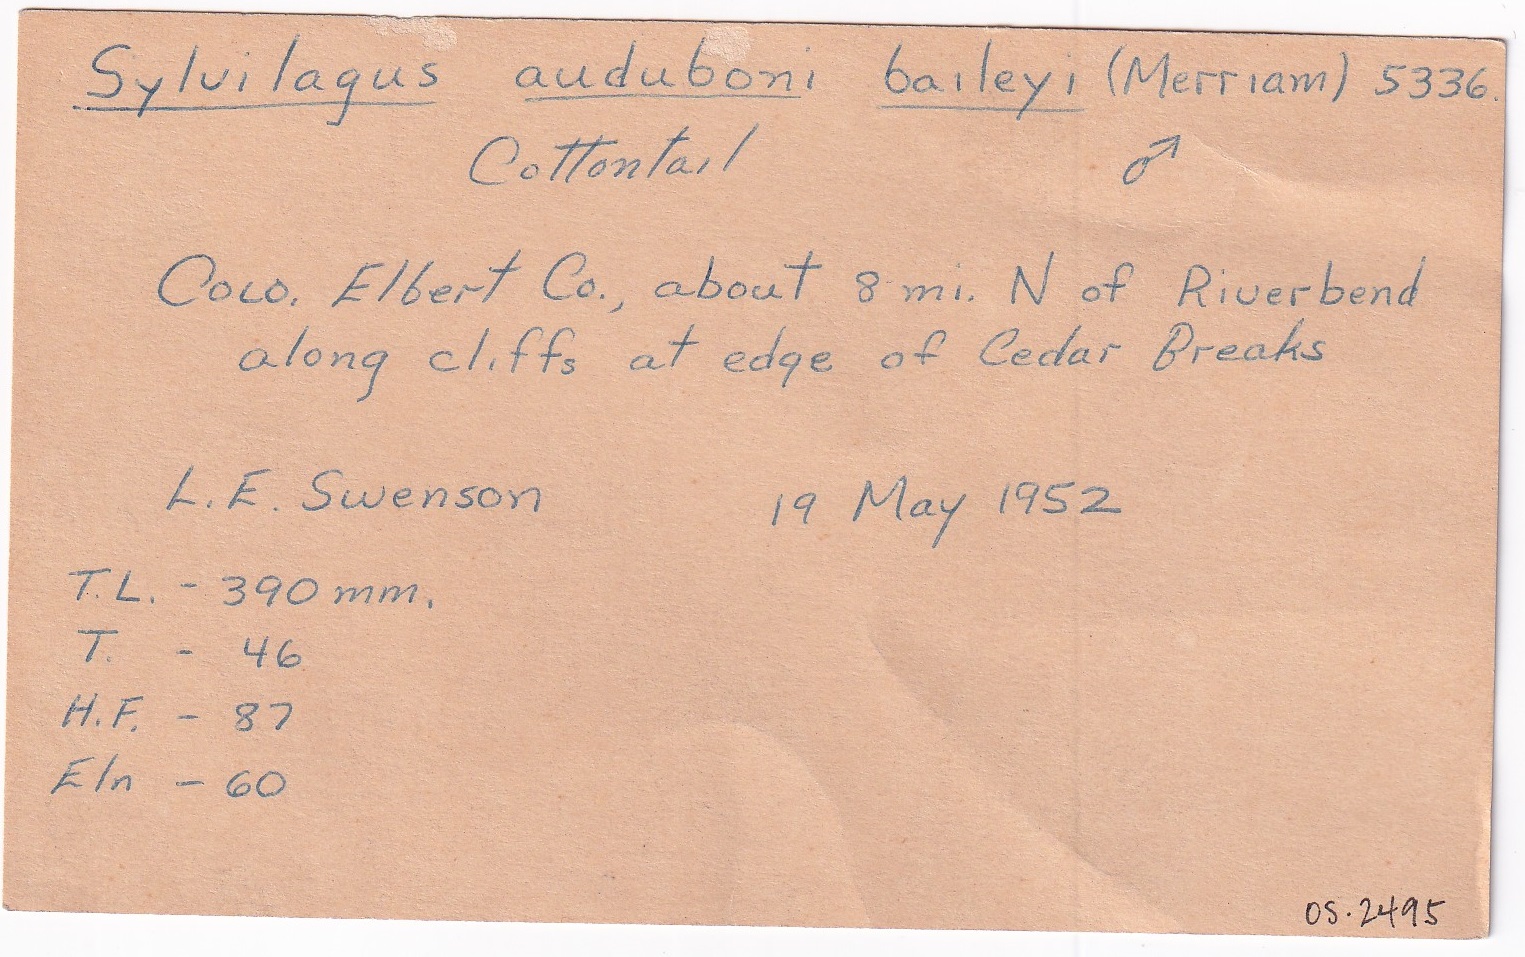 Sylvilagus auduboni baileyi (Merriam) 5336.
Cottontail ♂
Colo. Elbert Co., about 8 mi. N of Riverbend
along cliffs at edge of Cedar Breaks
L. E. Swenson 19 May 1952
T.L. - 390 mm.
T. - 46
H.F. - 87
E/n - 60
OS.2495